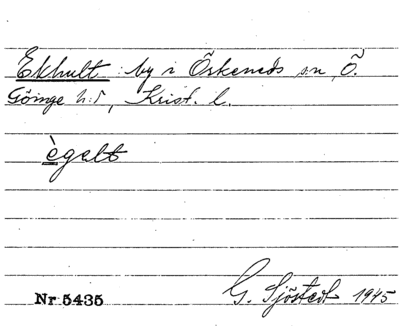 Ekhult by i Örkeneds sn, Ö.
Göinge h:d, Krist. l.
ègelt
Nr 5435 G. Sjöstedt 1945